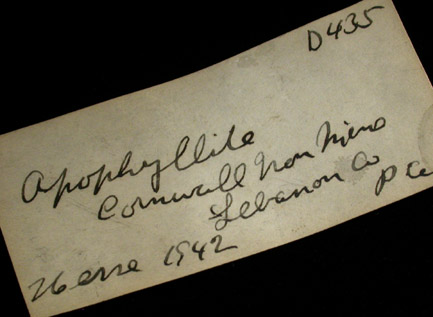 D435
Apophyllite
Cornwall Iron Mine
Lebanon Co
Pa
1942